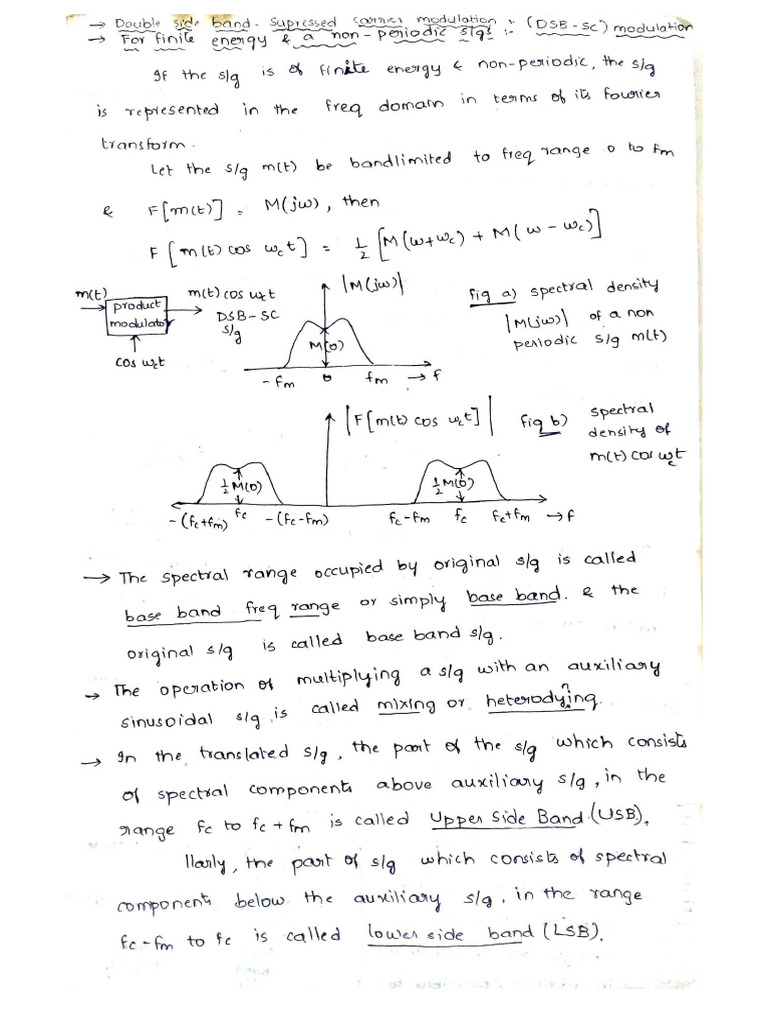 → Double side band - Supressed carrier modulation :- (DSB-SC) modulation
→ For finite energy & a non-periodic s/gs :-
If the s/g is of finite energy & non-periodic, the s/g
is represented in the freq domain in terms of its fourier
transform.
Let the s/g m(t) be bandlimited to freq range 0 to fm
& F[m(t)] = M(jω), then
F[m(t) cos ωct] = 1/2 [M(ω+ωc) + M(ω-ωc)]
m(t)
product
modulator
cos ωct
m(t) cos ωct
DSB-SC
s/g
|M(jω)|
M(0)
-fm 0 fm → f
fig a) spectral density
|M(jω)| of a non
periodic s/g m(t)
|F[m(t) cos ωct]|
fig b) spectral
density of
m(t) cos ωct
1/2 M(0) 1/2 M(0)
-(fc+fm) fc -(fc-fm) fc-fm fc fc+fm → f
→ The spectral range occupied by original s/g is called
base band freq range or simply base band. & the
original s/g is called base band s/g.
→ The operation of multiplying a s/g with an auxiliary
sinusoidal s/g is called mixing or heterodying.
n
→ In the translated s/g, the part of the s/g which consists
of spectral components above auxiliary s/g, in the
range fc to fc+fm is called Upper Side Band (USB).
llarly, the part of s/g which consists of spectral
component below the auxiliary s/g, in the range
fc-fm to fc is called lower side band (LSB).